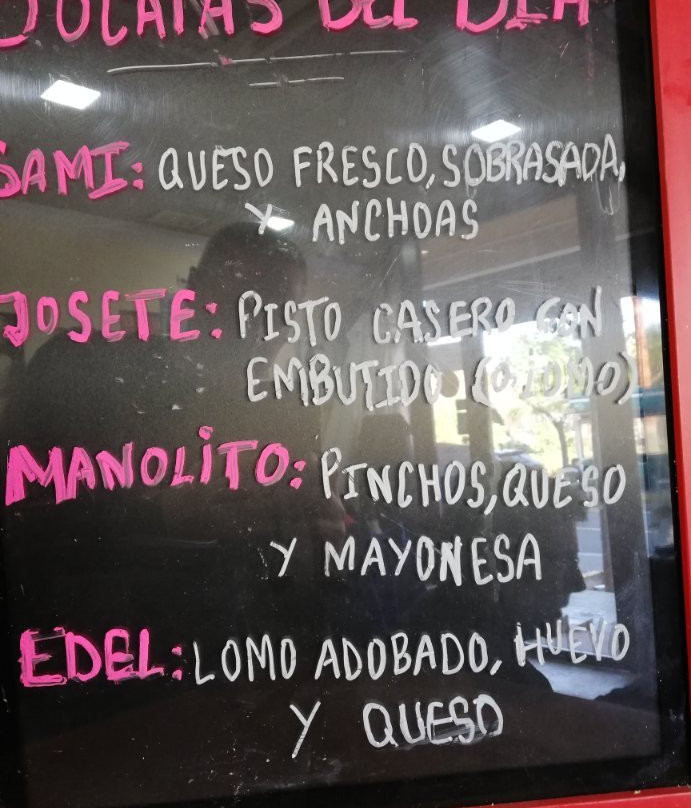 BOCATAS DEL DIA
SAMI: QUESO FRESCO, SOBRASADA,
Y ANCHOAS
JOSETE: PISTO CASERO CON
EMBUTIDO (O LOMO)
MANOLITO: PINCHOS, QUESO
Y MAYONESA
EDEL: LOMO ADOBADO, HUEVO
Y QUESO